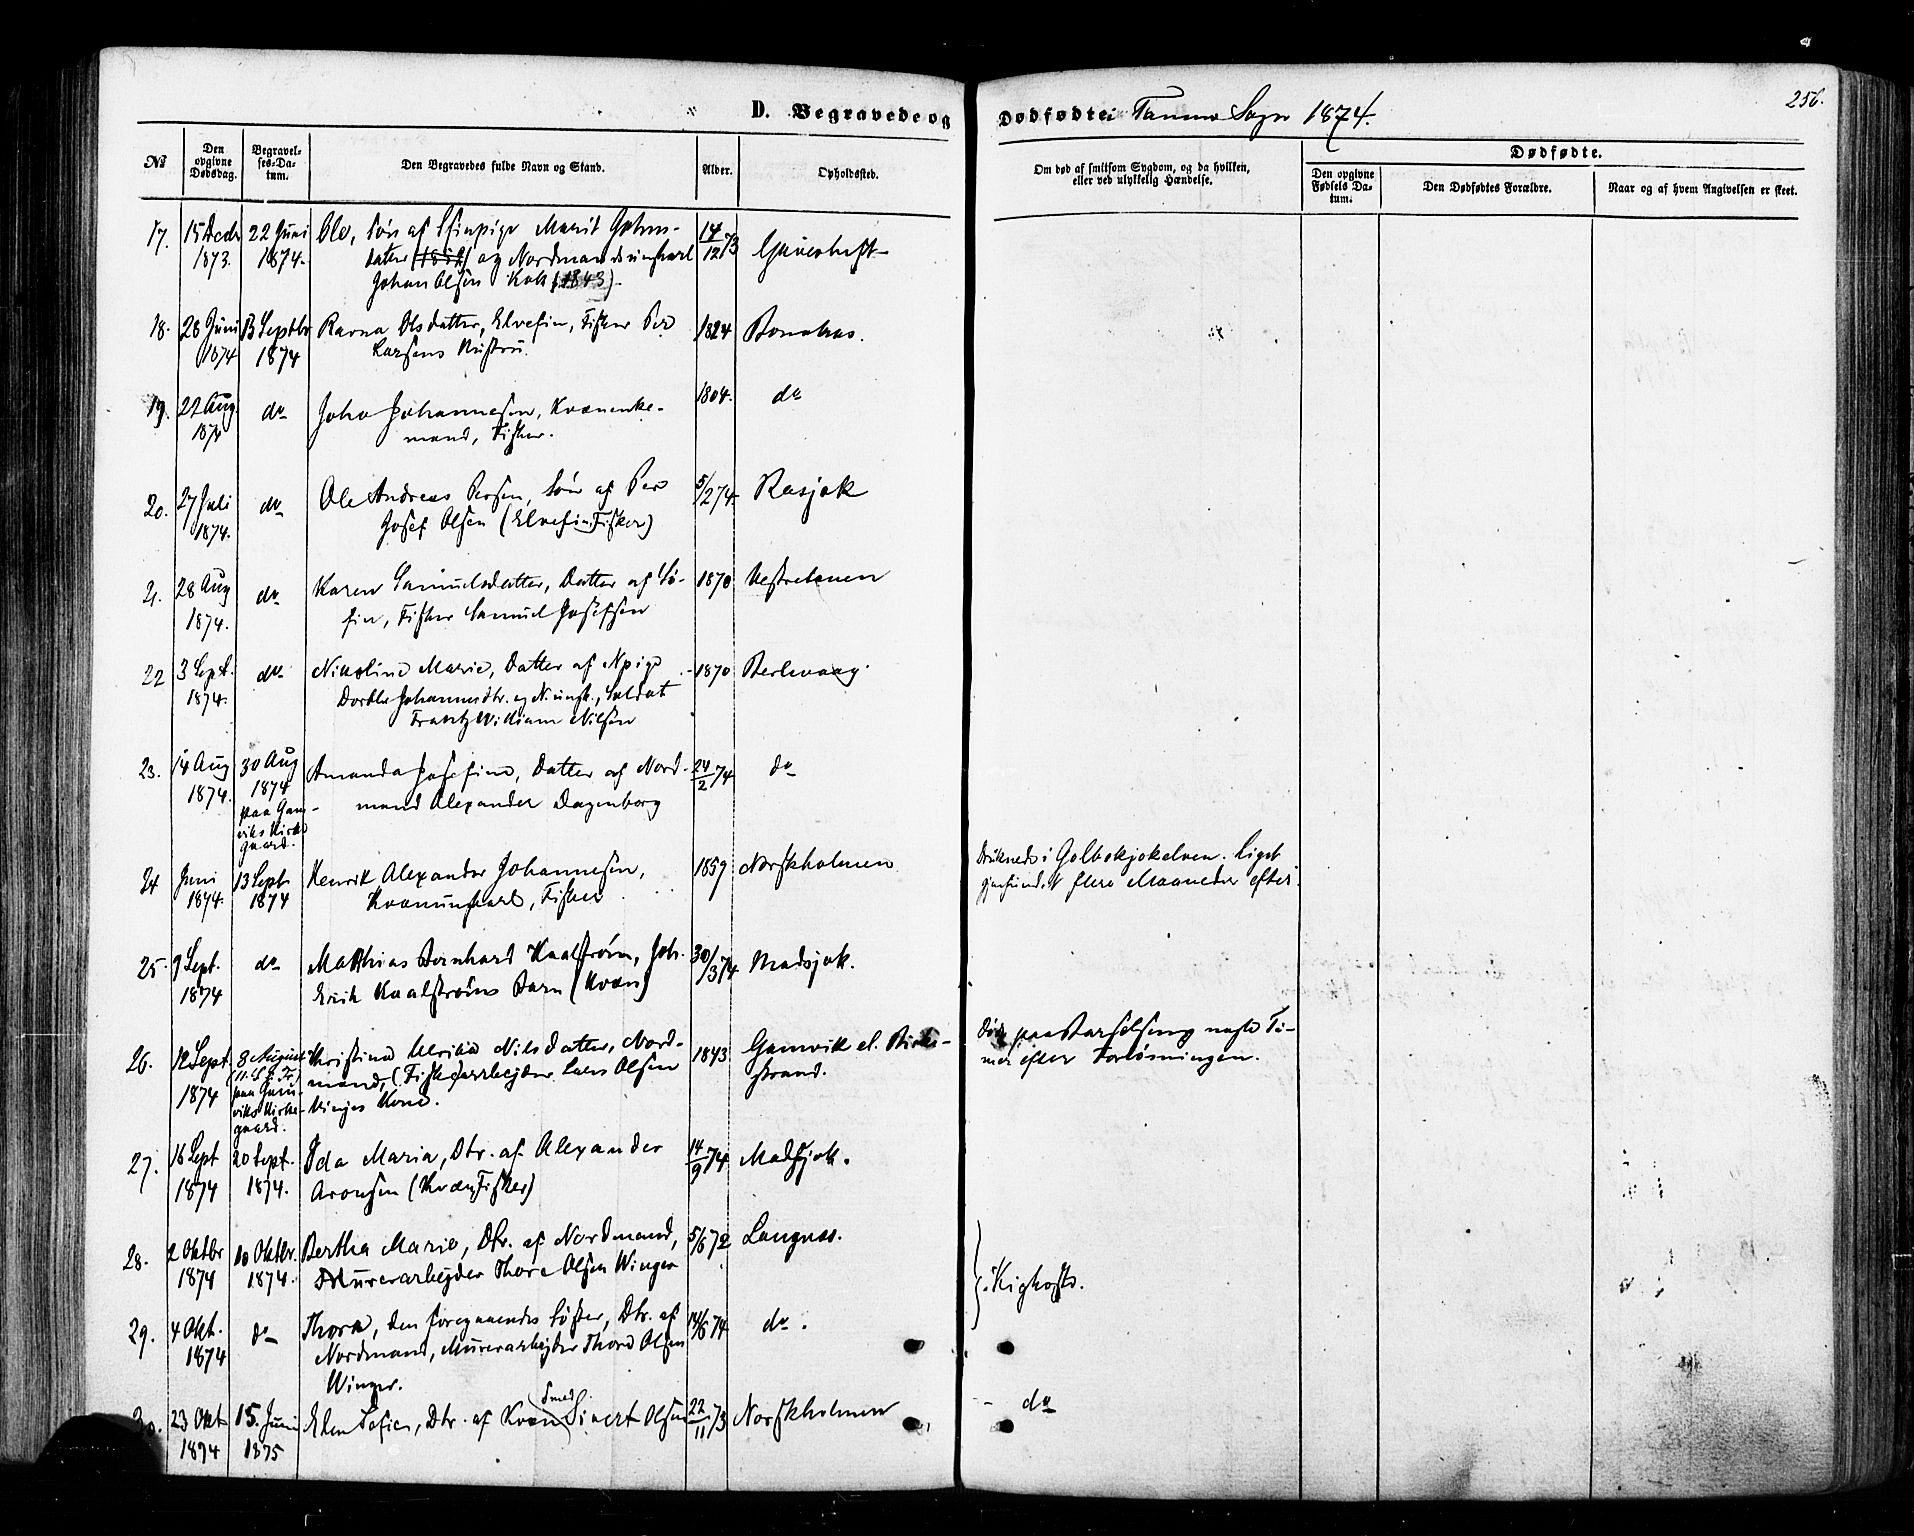 D. Begravede og Dødfødte i Tanens Sogn 1874.
256.
№
Den opgivne Dødsdag.
Begravelses-Datum.
Den Begravedes fulde Navn og Stand.
Alder.
Opholdssted.
Om død af smitsom Sygdom, og da hvilken, eller ved ulykkelig Hændelse.
Dødfødte.
Den opgivne Fødsels Datum.
Den Dødfødtes Forældre.
Naar og af hvem Angivelsen er skeet.
17. 15 Decbr 22 Juni Ole, Søn af Marit Johns- 14/12 73
1873. 1874. datter og Nordmandsungkarl
Johan Olsen (1843).
18. 28 Juni 13 Septbr Ravna Olsdatter, Elvefin, Fisker Per 1824 Bonakas.
1874 1874 Larsens Hustru.
19. 22 Aug do Joha Johannesen, Kvænenke- 1804. do
1874 mand, Fisker.
20. 27 Juli do Ole Andreas Persen, Søn af Per 5/2 74. Rasjok
1874. Josef Olsen (Elvefin, Fisker)
21. 28 Aug do Karen Samuelsdatter, Datter af Sø- 1870 Vestretanen
1874. fin, Fisker Samuel Josefsen
22 3 Sept. do Nikoline Marie, Datter af Npige 1870 Berlevaag.
1874. Dorthe Johannesdtr. og N.ungk., Soldat
Frantz William Nilsen
23. 14 Aug 30 Aug Amanda Josefine, Datter af Nord- 24/2 74 do
1874. 1874 mand Alexander Dagenborg
paa Gam-
viks Kirke
gaard.
24 Juni 13 Sept Henrik Alexander Johannesen, 1859 Norskholmen Druknede i Golbekjokelven. Liget
1874. 1874 Kvænungkarl, Fisker gjenfundet flere Maaneder efter.
25. 9 Sept. do Mathias Bernhard Kaalstrøm, Joh. 30/3 74 Madsjok.
1874 Erik Kaalstrøms Barn (Kvæn)
26. 12 Sept. 8 August Kristine Ulrikke Nilsdatter, Nord- 1843 Gamvik el. Birke- Døde paa Barselseng nogle Ti-
1874 paa Gam- mand, (Fisker)arbejder Lars Olsen strand. mer efter Forløsningen.
viks Kirke- Vinjes Kone.
gaard.
27. 16 Sept 20 Sept. Ida Maria, Dtr. af Alexander 14/9 74 Madsjok.
1874 1874. Aronsen (Kvæn, Fisker)
28. 2 Oktbr 10 Oktbr. Bertha Marie, Dtr. af Nordmand, 5/6 72 Langnes.
1874 1874. Murerarbejder Thore Olsen Winger
} Kighoste.
29. 4 Okt. do Thora, den foregaaendes Søster, Dtr. af 14/6 74 do.
1874 Nordmand, Murerarbejder Thore Olsen
Winger.
30. 23 Okt 15. Juni Elen Sofie, Dtr. af Kvæn Smed Sivert Olsen 22/11 73 Norskholmen - do
1874 1875